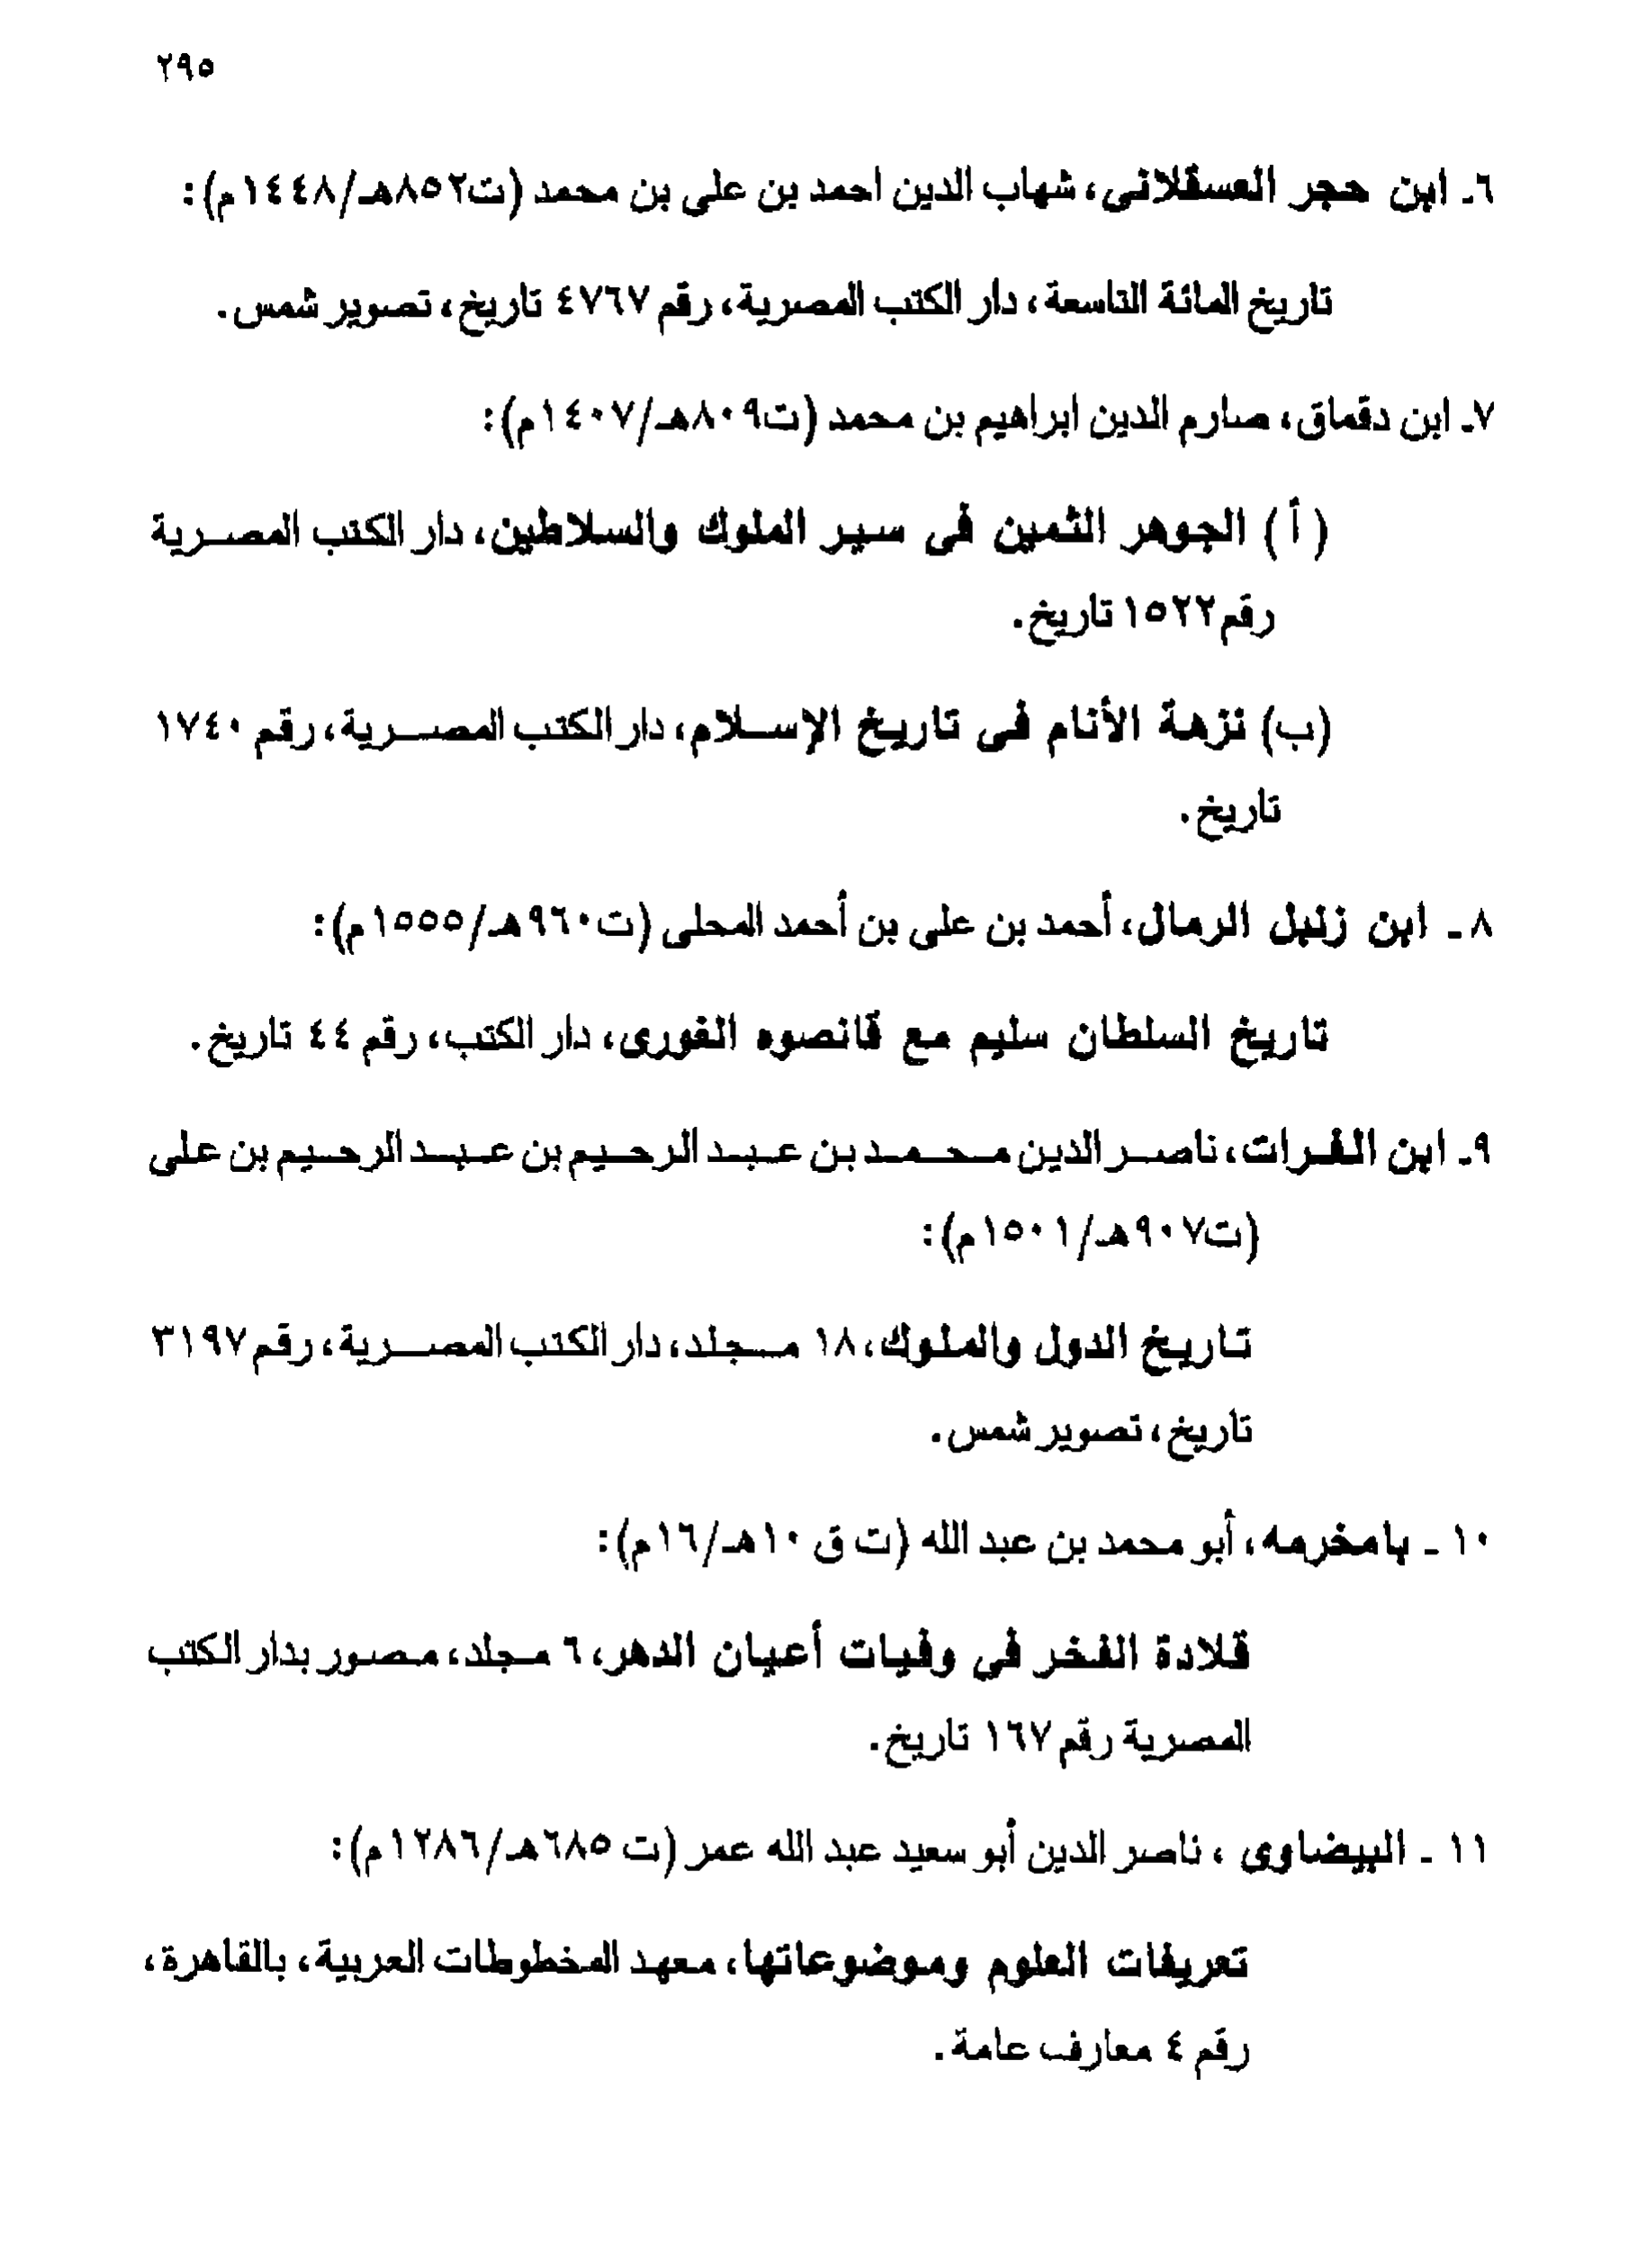 ٢٩٥
٦ـ ابن حجر العسقلانى، شهاب الدين احمد بن على بن محمد (ت٨٥٢هـ/١٤٤٨م):
تاريخ المائة التاسعة، دار الكتب المصرية، رقم ٤٧٦٧ تاريخ، تصوير شمس.
٧ـ ابن دقماق، صارم الدين ابراهيم بن محمد (ت٨٠٩هـ/١٤٠٧م):
(أ) الجوهر الثمين فى سير الملوك والسلاطين، دار الكتب المصرية
رقم ١٥٢٢ تاريخ.
(ب) نزهة الأنام فى تاريخ الإسلام، دار الكتب المصرية، رقم ١٧٤٠
تاريخ.
٨ ـ ابن زنبل الرمال، أحمد بن على بن أحمد المحلى (ت٩٦٠هـ/١٥٥٥م):
تاريخ السلطان سليم مع قانصوه الغورى، دار الكتب، رقم ٤٤ تاريخ.
٩ـ ابن الفرات، ناصر الدين محمد بن عبد الرحيم بن عبد الرحيم بن على
(ت٩٠٧هـ/١٥٠١م):
تاريخ الدول والملوك، ١٨ مجلد، دار الكتب المصرية، رقم ٣١٩٧
تاريخ، تصوير شمس.
١٠ ـ بامخرمه، أبو محمد بن عبد الله (ت ق ١٠هـ/١٦م):
قلادة الفخر فى وفيات أعيان الدهر، ٦ مجلد، مصور بدار الكتب
المصرية رقم ١٦٧ تاريخ.
١١ ـ البيضاوى، ناصر الدين أبو سعيد عبد الله عمر (ت ٦٨٥هـ/١٢٨٦م):
تعريفات العلوم وموضوعاتها، معهد المخطوطات العربية، بالقاهرة،
رقم ٤ معارف عامة.